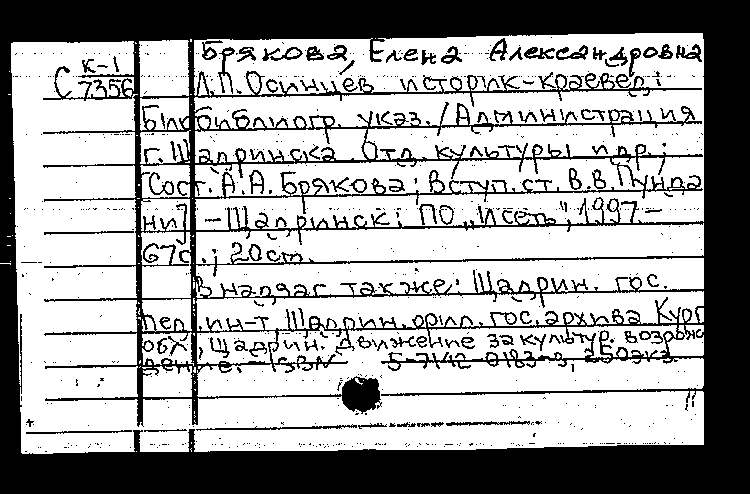 Брякова, Елена Александровна
С к-1 7356
Л.П. Осинцев историк-краевед:
Биобиблиогр. указ. / Администрация
г. Шадринска. Отд. культуры и др.;
[Сост. А.А. Брякова; Вступ. ст. В.В. Пунда
ни] - Шадринск: ПО „Исеть", 1997. -
67с.; 20см.
В надзаг также: Шадрин. гос.
пед. ин-т, Шадрин. фил. гос. архива Кург
обл., Шадрин. движение за культур. возрож
дение. - ISBN 5-7142-0183-3, 250экз.